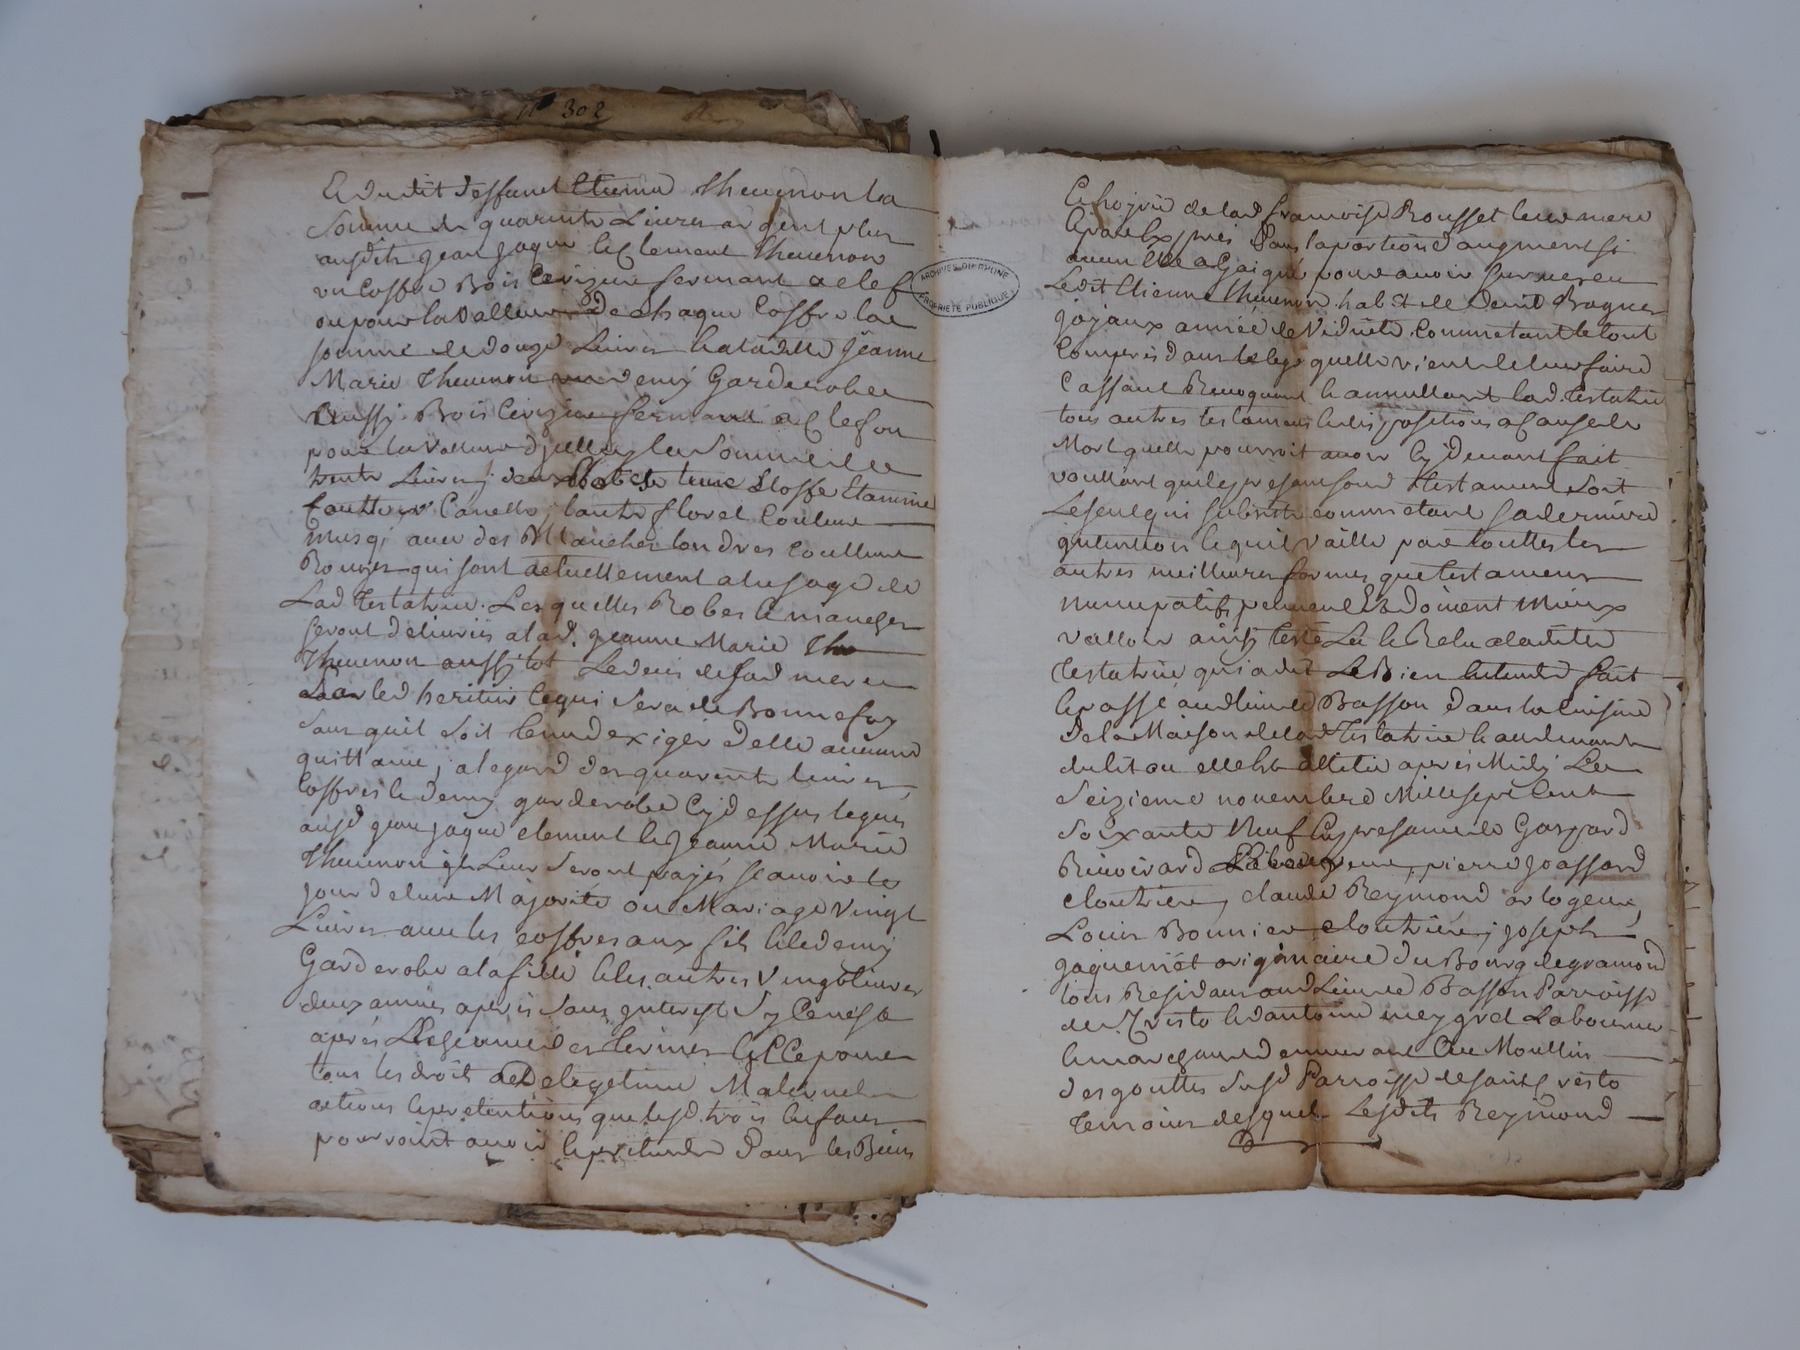 N° 302
Et dudit deffunt Etienne Thevenon la
Somme de quarente Livres argent plus
ausdits jean jaque et Clement Thevenon
un Coffre Bois Cerizier fermant a clef
ou pour la valleur de chaque Coffre la
somme de douze Livres et a ladite Jeanne
Marie Thevenon un demy Garderobe
aussi Bois Cerizier fermant a Clef ou
pour la valleur d'jcelluy la Somme de
trente Livres; deux Robes une Etoffe Etamine
Couleur Canelle, l'autre floret Couleur
musq; avec des Manches londres Coulleur
Rouges qui sont actuellement a lusage de
Lad Testatrice. Lesquelles Robes et manches
seront delivrées a lad. Jeanne Marie
Thevenon aussytot Le deces de sad mere
par led heritier ce qui sera de Bonnefoy
sans quil soit tenu dexiger delle aucune
quittance; a legard des quarente livres,
Coffres et demy garderobe Cydessus legués
ausd jean jaque clement et Jeanne Marie
Thevenon ils Leur seront payés scavoir le
jour de leur Majorité ou Mariage Vingt
Livres avec les coffres aux fils et le demy
Garderobe a la fille et les autres Vingt livres
deux années apres sans interest sy Ce nest
après Lescheance des termes et Ce pour
tous les droits de legitime Maternel
actions et pretentions que lesd trois enfans
pourroint avoir et pretendre dans les Biens
ARCHIVES DU RHONE
PROPRIÉTÉ PUBLIQUE
Et hojrie de lad francoise Rousset leur mere
et par Exprès dans la portion d'augment si
aucun Elle a Gaigné pour avoir survecu
Ledit Etienne Thevenon habit de deuil Bagues
joyaux année de Viduité Commettant le tout
Compris dans le legs quelle vient de leur faire
Cassant Revoquant et annullant lad. testatrice
tous autres testamens et dispositions a Cause de
Mort quelle pourroit avoir cy devant fait
voullant que le present son testament soit
Le seul qui subsiste commettant sa derniere
intention et quil vaille par touttes les
autres meilleures formes que testamens
nuncupatifs peuvent Et doivent Mieux
valloir ainsy testé Lu et Relu a ladite
testatrice qui a dit Le Bien Entendre fait
et passé aud lieu de Basson dans la Cuisine
de la Maison de lad Testatrice et au devant
du lit ou elle est allitée après Midy Le
Seizieme novembre Mille sept Cent
Soixante Neuf En presance de Gaspard
Reinoivard, pierre joassard
Cloutrier, claude Reymond orlogeur,
Louis Bonnier cloutrier; joseph
jaquemot originaire du Bourg de gramond
tous Residans aud Lieu de Basson Parroisse
de St Cristo et d'antoine meygret Laboureur
et marchand demeurant Au Moullin
des gouttes susd Parroisse de saint Cristo
temoins desquels Lesdits Reymond